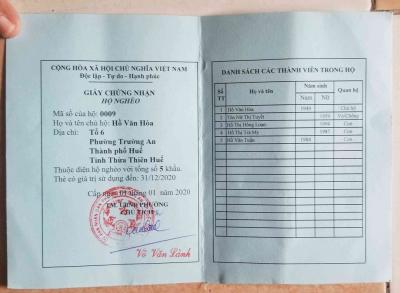 CỘNG HÒA XÃ HỘI CHỦ NGHĨA VIỆT NAM
Độc lập - Tự do - Hạnh phúc
GIẤY CHỨNG NHẬN
HỘ NGHÈO
Mã số của hộ: 0009
Họ và tên chủ hộ: Hồ Văn Hòa
Địa chỉ: Tổ 6
Phường Trường An
Thành phố Huế
Tỉnh Thừa Thiên Huế
Thuộc diện hộ nghèo với tổng số 5 khẩu.
Thẻ có giá trị sử dụng đến: 31/12/2020
Cấp ngày 01 tháng 01 2020
TM. UBND PHƯỜNG
CHỦ TỊCH
Võ Văn Lành
DANH SÁCH CÁC THÀNH VIÊN TRONG HỘ
Số TT Họ và tên Năm sinh Quan hệ
Nam Nữ
1 Hồ Văn Hòa 1949 Chủ hộ
2 Thị Tuyết Vợ/Chồng
3 Hồ Thị Hồng Loan Con
4 Hồ Thị Trà My Con
5 Hồ Văn Tuấn Con